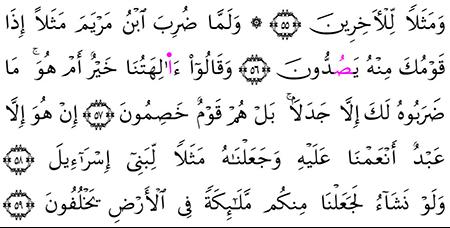 وَمَثَلًا لِّلْأَخِرِينَ ۝٥٥ ۞ وَلَمَّا ضُرِبَ ٱبْنُ مَرْيَمَ مَثَلًا إِذَا
قَوْمُكَ مِنْهُ يَصُدُّونَ ۝٥٦ وَقَالُوٓا۟ ءَا۬لِهَتُنَا خَيْرٌ أَمْ هُوَ ۚ مَا
ضَرَبُوهُ لَكَ إِلَّا جَدَلًۢا ۚ بَلْ هُمْ قَوْمٌ خَصِمُونَ ۝٥٧ إِنْ هُوَ إِلَّا
عَبْدٌ أَنْعَمْنَا عَلَيْهِ وَجَعَلْنَٰهُ مَثَلًا لِّبَنِىٓ إِسْرَٰٓءِيلَ ۝٥٨
وَلَوْ نَشَآءُ لَجَعَلْنَا مِنكُم مَّلَٰٓئِكَةً فِى ٱلْأَرْضِ يَخْلُفُونَ ۝٥٩